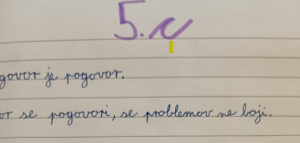 5. r
govor je pogovor.
or se pogovori, se problemov ne boji.